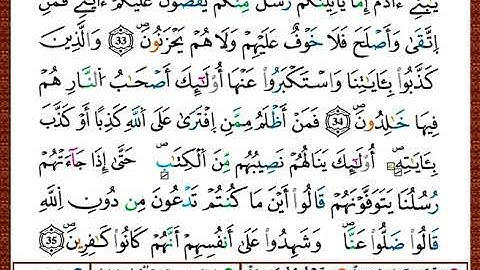 يَٰبَنِےٓ ءَادَمَ إِمَّا يَاتِيَنَّكُمْ رُسُلٌ مِّنكُمْ يَقُصُّونَ عَلَيْكُمُۥٓ ءَايَٰتِے فَمَنِ
اِتَّقَىٰ وَأَصْلَحَ فَلَا خَوْفٌ عَلَيْهِمْ وَلَا هُمْ يَحْزَنُونَۖ 33 وَالَّذِينَ
كَذَّبُواْ بِـَٔايَٰتِنَا وَاسْتَكْبَرُواْ عَنْهَآ أُوْلَٰٓئِكَ أَصْحَٰبُ النَّارِ هُمْ
فِيهَا خَٰلِدُونَۖ 34 فَمَنَ اَظْلَمُ مِمَّنِ اِفْتَرَىٰ عَلَى اَللَّهِ كَذِبًا اَوْ كَذَّبَ
بِـَٔايَٰتِهِۦٓۖ أُوْلَٰٓئِكَ يَنَالُهُمْ نَصِيبُهُم مِّنَ اَلْكِتَٰبِۖ حَتَّىٰٓ إِذَا جَآءَتْهُمْ
رُسُلُنَا يَتَوَفَّوْنَهُمْ قَالُوٓاْ أَيْنَ مَا كُنتُمْ تَدْعُونَ مِن دُونِ اِللَّهِ
قَالُواْ ضَلُّواْ عَنَّاۖ وَشَهِدُواْ عَلَىٰٓ أَنفُسِهِمُۥٓ أَنَّهُمْ كَانُواْ كَٰفِرِينَۖ 35